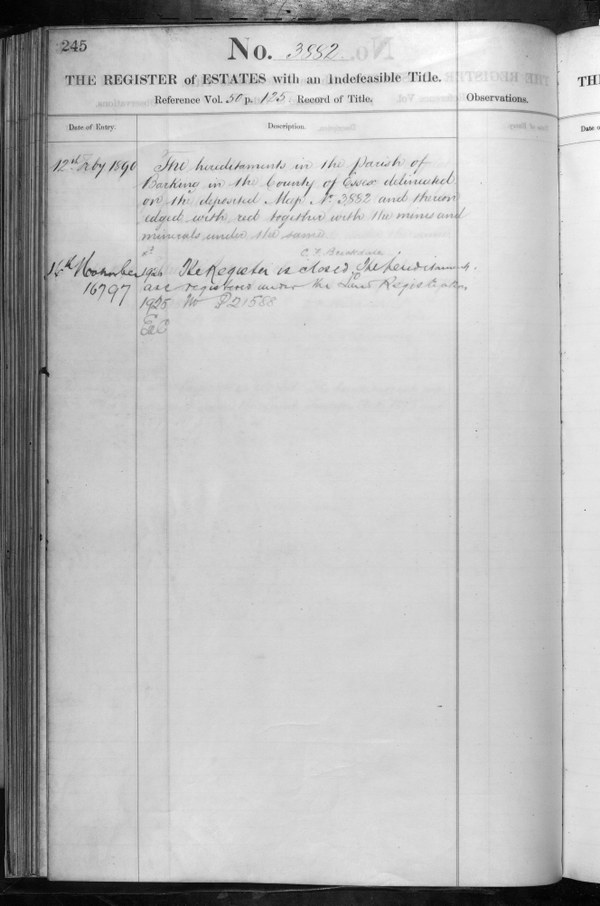 245
No. 3882
THE REGISTER of ESTATES with an Indefeasible Title.
Reference Vol. 50 p. 125 Record of Title.
Observations.
Date of Entry.
Description.
12th Feby 1890
The hereditaments in the Parish of
Barking in the County of Essex delineated
on the deposited Map No 3882 and thereon
edged with red together with the mines and
minerals under the same
16th November 1926 The Register is closed. The hereditaments
16797 are registered under the Land Registration
1925 No P21588
TH
Date o